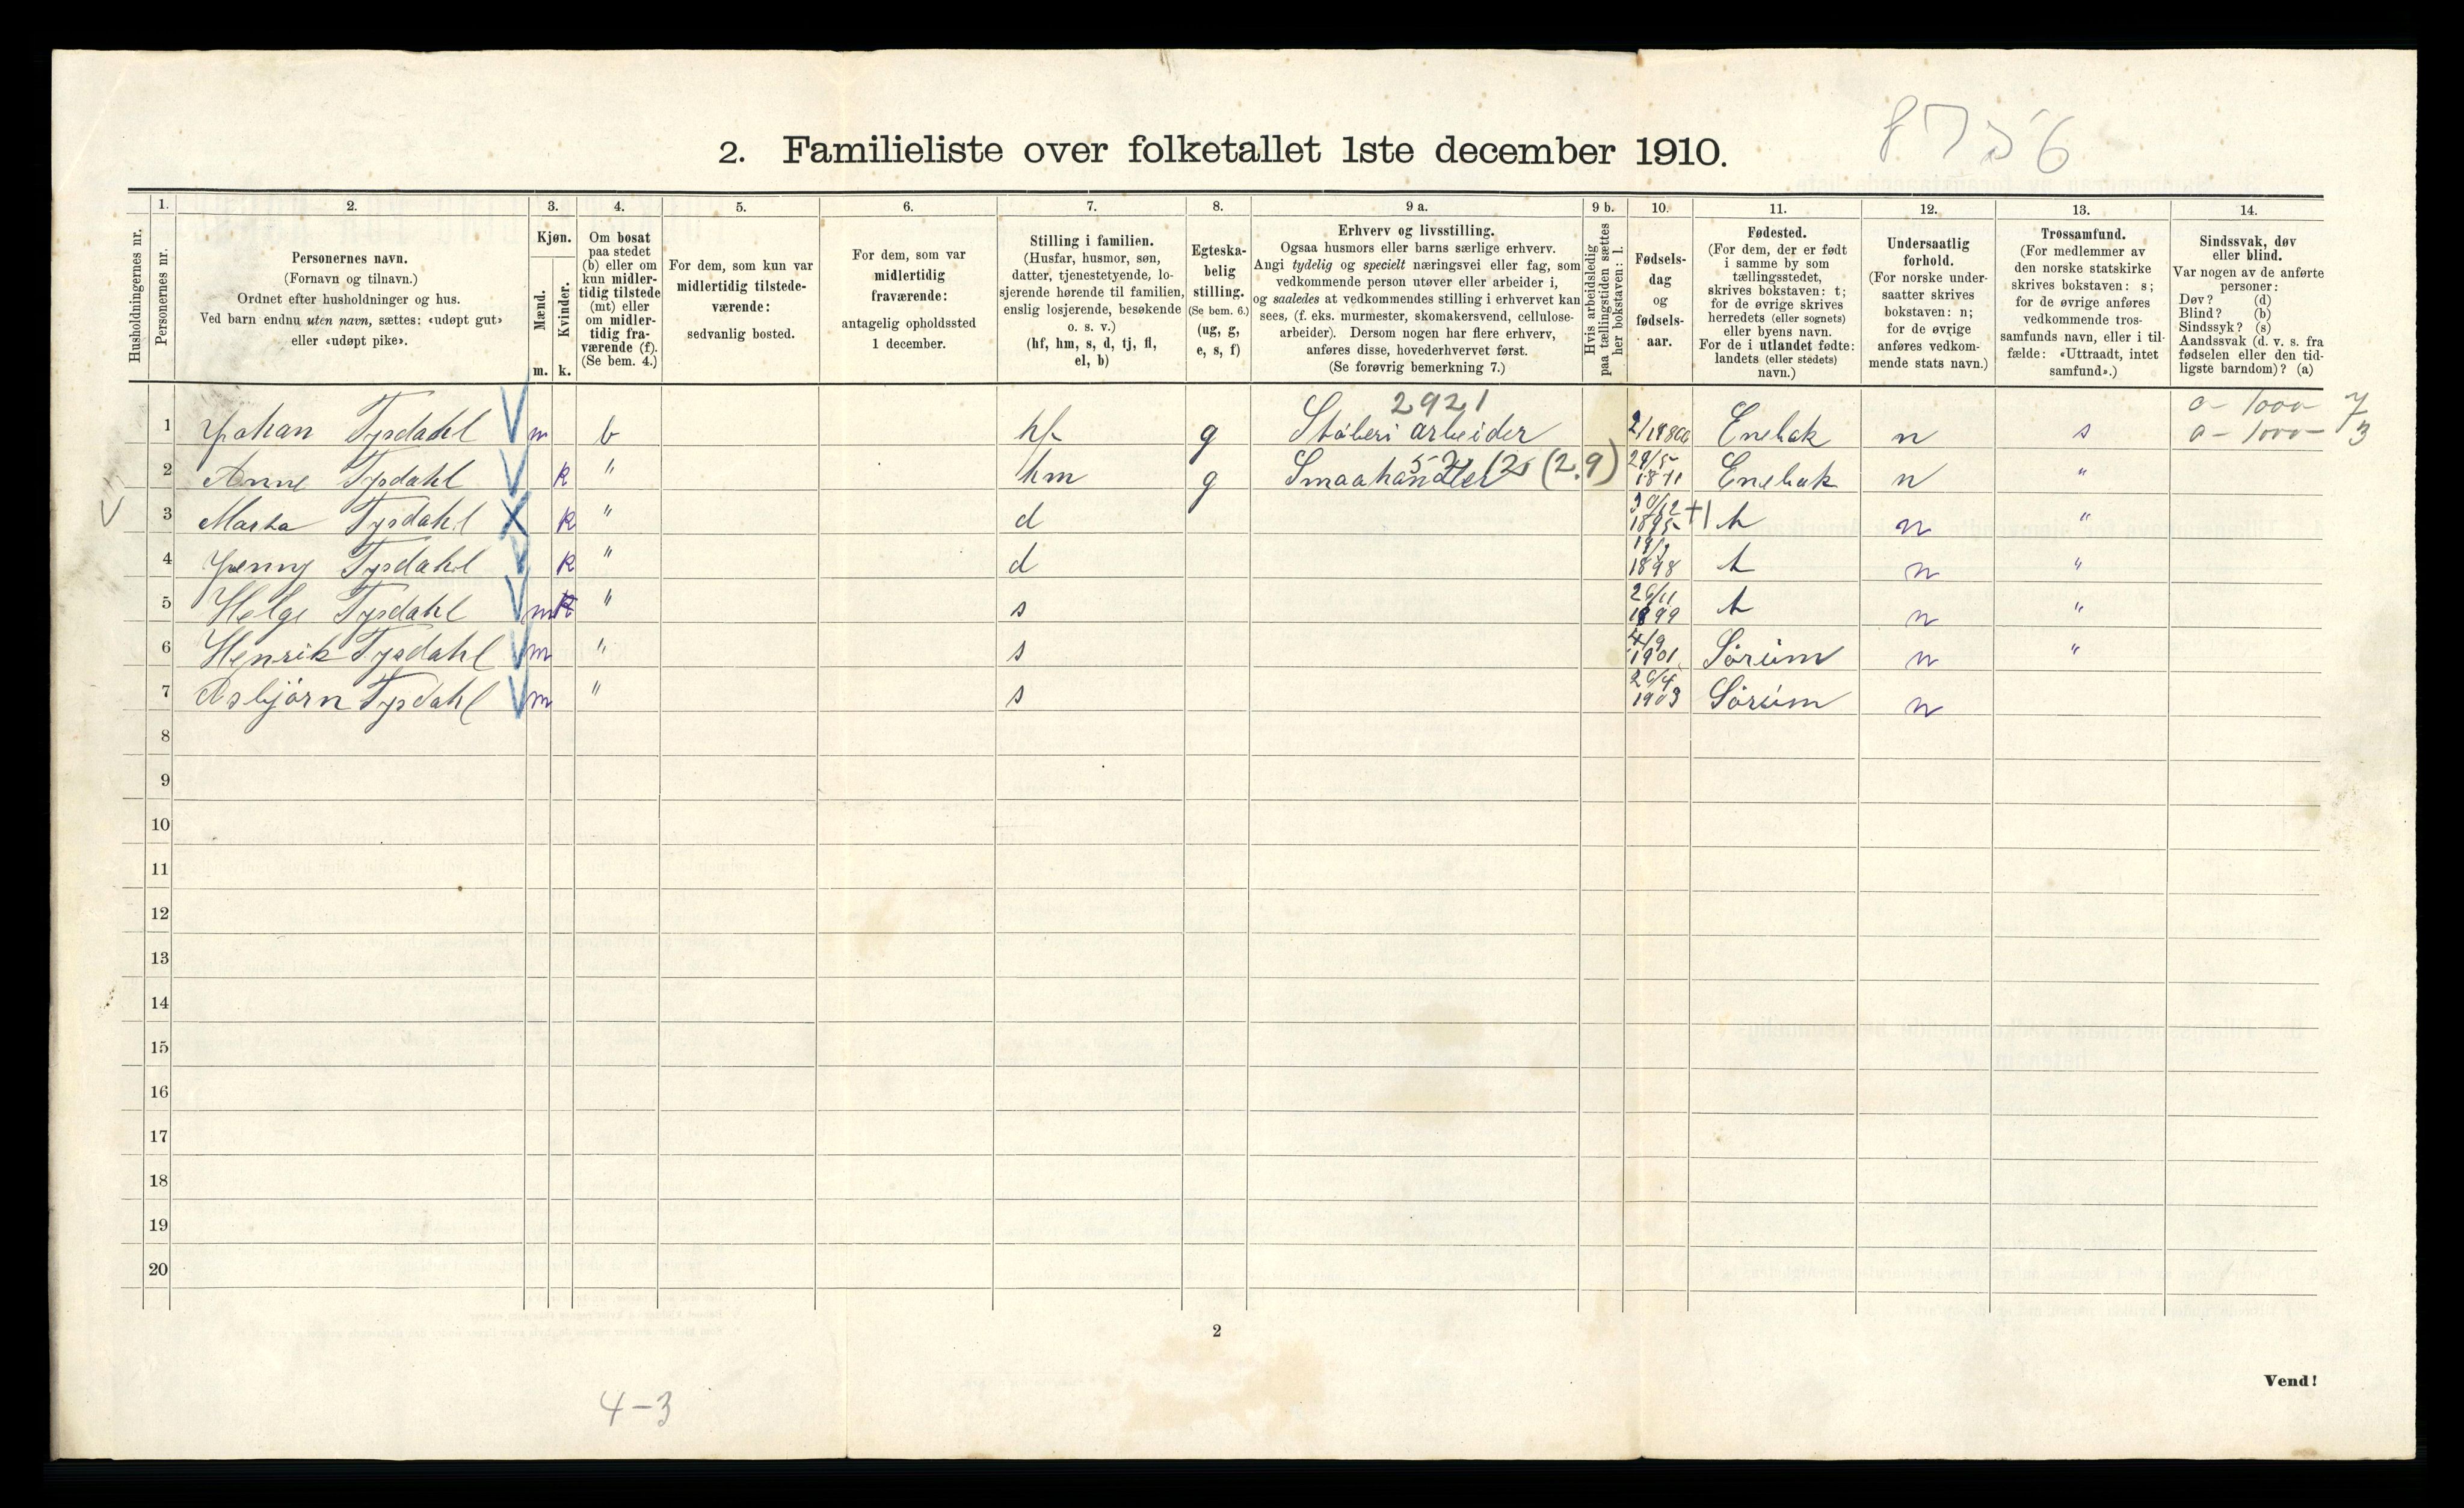 8756
2. Familieliste over folketallet 1ste december 1910.
Husholdningernes nr.
1. Personernes nr.
2. Personernes navn.
(Fornavn og tilnavn.)
Ordnet efter husholdninger og hus.
Ved barn endnu uten navn, sættes: «udøpt gut»
eller «udøpt pike».
3. Kjøn.
Mænd. Kvinder.
m. k.
4. Om bosat
paa stedet
(b) eller om
kun midler-
tidig tilstede
(mt) eller
om midler-
tidig fra-
værende (f).
(Se bem. 4.)
5. For dem, som kun var
midlertidig tilstede-
værende:
sedvanlig bosted.
6. For dem, som var
midlertidig
fraværende:
antagelig opholdssted
1 december.
7. Stilling i familien.
(Husfar, husmor, søn,
datter, tjenestetyende, lo-
sjerende hørende til familien,
enslig losjerende, besøkende
o. s. v.)
(hf, hm, s, d, tj, fl,
el, b)
8. Egteska-
belig
stilling.
(Se bem. 6.)
(ug, g,
e, s, f)
9 a. Erhverv og livsstilling.
Ogsaa husmors eller barns særlige erhverv.
Angi tydelig og specielt næringsvei eller fag, som
vedkommende person utøver eller arbeider i,
og saaledes at vedkommendes stilling i erhvervet kan
sees, (f. eks. murmester, skomakersvend, cellulose-
arbeider). Dersom nogen har flere erhverv,
anføres disse, hovederhvervet først.
(Se forøvrig bemerkning 7.)
9 b. Hvis arbeidsledig
paa tællingstiden sættes
her bokstaven: l.
10. Fødsels-
dag
og
fødsels-
aar.
11. Fødested.
(For dem, der er født
i samme by som
tællingsstedet,
skrives bokstaven: t;
for de øvrige skrives
herredets (eller sognets)
eller byens navn.
For de i utlandet fødte:
landets (eller stedets)
navn.)
12. Undersaatlig
forhold.
(For norske under-
saatter skrives
bokstaven: n;
for de øvrige
anføres vedkom-
mende stats navn.)
13. Trossamfund.
(For medlemmer av
den norske statskirke
skrives bokstaven: s;
for de øvrige anføres
vedkommende tros-
samfunds navn, eller i til-
fælde: «Uttraadt, intet
samfund».)
14. Sindssvak, døv
eller blind.
Var nogen av de anførte
personer:
Døv? (d)
Blind? (b)
Sindssyk? (s)
Aandssvak (d. v. s. fra
fødselen eller den tid-
ligste barndom)? (a)
2921 a - 1000 - 7
1 Johan Tysdahl m b hf g Stöberi arbeider Enebak n s a - 1000 - 3
2 Anne Tysdahl k " hm g Smaahandler (2.9) 29/5 1871 Enebak n "
3 Marta Tysdahl k " d 30/12 1895 +1 t n "
4 Jenny Tysdahl k " d 1898 t n "
5 Helge Tysdahl m k " s 26/11 1899 t n "
6 Henrik Tysdahl m " s 4/9 1901 Sörum n "
7 Asbjörn Tysdahl m " s 20/4 1903 Sörum n
8
9
10
11
12
13
14
15
16
17
18
19
20
2
Vend!
4-3